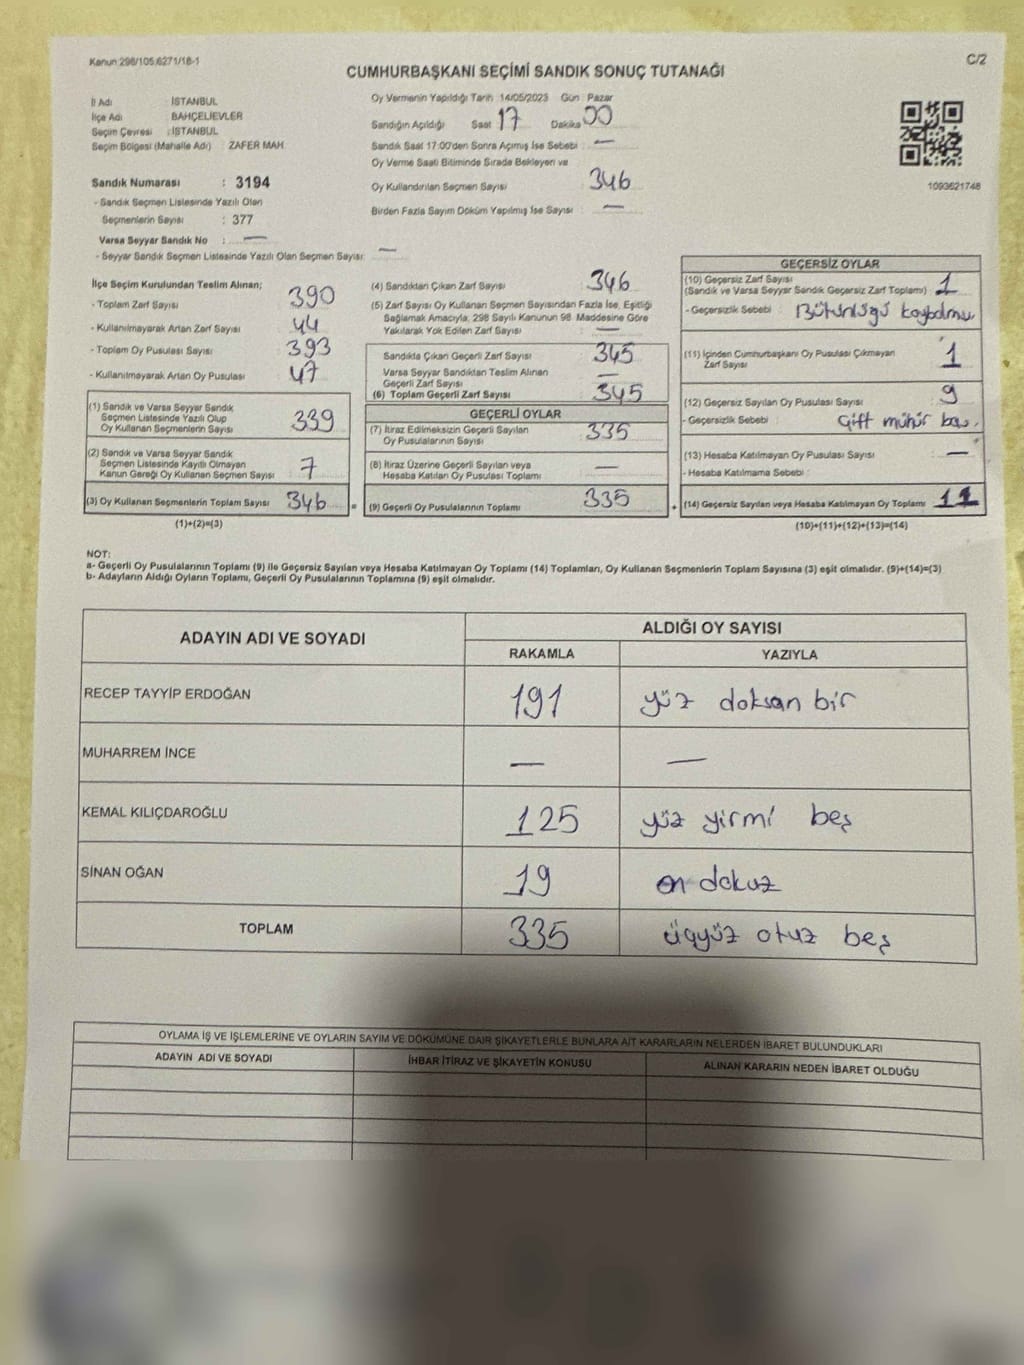 Kanun:298/105,6271/18-1
C/2
CUMHURBAŞKANI SEÇİMİ SANDIK SONUÇ TUTANAĞI
İl Adı : İSTANBUL
İlçe Adı : BAHÇELİEVLER
Seçim Çevresi : İSTANBUL
Seçim Bölgesi (Mahalle Adı) ZAFER MAH.
Sandık Numarası : 3194
- Sandık Seçmen Listesinde Yazılı Olan
Seçmenlerin Sayısı : 377
Varsa Seyyar Sandık No : —
- Seyyar Sandık Seçmen Listesinde Yazılı Olan Seçmen Sayısı: —
Oy Vermenin Yapıldığı Tarih 14/05/2023 Gün : Pazar
Sandığın Açıldığı Saat 17 Dakika 00
Sandık Saat 17:00'den Sonra Açımış İse Sebebi : —
Oy Verme Saati Bitiminde Sırada Bekleyen ve
Oy Kullandırılan Seçmen Sayısı 346
Birden Fazla Sayım Döküm Yapılmış İse Sayısı : —
1093621748
İlçe Seçim Kurulundan Teslim Alınan;
- Toplam Zarf Sayısı 390
- Kullanılmayarak Artan Zarf Sayısı 44
- Toplam Oy Pusulası Sayısı 393
- Kullanılmayarak Artan Oy Pusulası 47
(1) Sandık ve Varsa Seyyar Sandık
Seçmen Listesinde Yazılı Olup
Oy Kullanan Seçmenlerin Sayısı 339
(2) Sandık ve Varsa Seyyar Sandık
Seçmen Listesinde Kayıtlı Olmayan
Kanun Gereği Oy Kullanan Seçmen Sayısı 7
(3) Oy Kullanan Seçmenlerin Toplam Sayısı 346
(1)+(2)=(3)
=
(4) Sandıktan Çıkan Zarf Sayısı 346
(5) Zarf Sayısı Oy Kullanan Seçmen Sayısından Fazla İse, Eşitliği
Sağlamak Amacıyla, 298 Sayılı Kanunun 98. Maddesine Göre
Yakılarak Yok Edilen Zarf Sayısı : —
Sandıkta Çıkan Geçerli Zarf Sayısı 345
Varsa Seyyar Sandıktan Teslim Alınan
Geçerli Zarf Sayısı —
(6) Toplam Geçerli Zarf Sayısı 345
GEÇERLİ OYLAR
(7) İtiraz Edilmeksizin Geçerli Sayılan
Oy Pusulalarının Sayısı 335
(8) İtiraz Üzerine Geçerli Sayılan veya
Hesaba Katılan Oy Pusulası Toplamı —
(9) Geçerli Oy Pusulalarının Toplamı 335
+
GEÇERSİZ OYLAR
(10) Geçersiz Zarf Sayısı
(Sandık ve Varsa Seyyar Sandık Geçersiz Zarf Toplamı) 1
- Geçersizlik Sebebi : Bütünlüğü
(11) İçinden Cumhurbaşkanı Oy Pusulası Çıkmayan
Zarf Sayısı 1
(12) Geçersiz Sayılan Oy Pusulası Sayısı 9
- Geçersizlik Sebebi : Çift mühür
(13) Hesaba Katılmayan Oy Pusulası Sayısı —
- Hesaba Katılmama Sebebi :
(14) Geçersiz Sayılan veya Hesaba Katılmayan Oy Toplamı 11
(10)+(11)+(12)+(13)=(14)
NOT:
a- Geçerli Oy Pusulalarının Toplamı (9) ile Geçersiz Sayılan veya Hesaba Katılmayan Oy Toplamı (14) Toplamları, Oy Kullanan Seçmenlerin Toplam Sayısına (3) eşit olmalıdır. (9)+(14)=(3)
b- Adayların Aldığı Oyların Toplamı, Geçerli Oy Pusulalarının Toplamına (9) eşit olmalıdır.
ADAYIN ADI VE SOYADI ALDIĞI OY SAYISI
RAKAMLA YAZIYLA
RECEP TAYYİP ERDOĞAN 191 yüz doksan bir
MUHARREM İNCE — —
KEMAL KILIÇDAROĞLU 125 yüz yirmi beş
SİNAN OĞAN 19 on dokuz
TOPLAM 335 üçyüz otuz beş
OYLAMA İŞ VE İŞLEMLERİNE VE OYLARIN SAYIM VE DÖKÜMÜNE DAİR ŞİKAYETLERLE BUNLARA AİT KARARLARIN NELERDEN İBARET BULUNDUKLARI
ADAYIN ADI VE SOYADI İHBAR İTİRAZ VE ŞİKAYETİN KONUSU ALINAN KARARIN NEDEN İBARET OLDUĞU